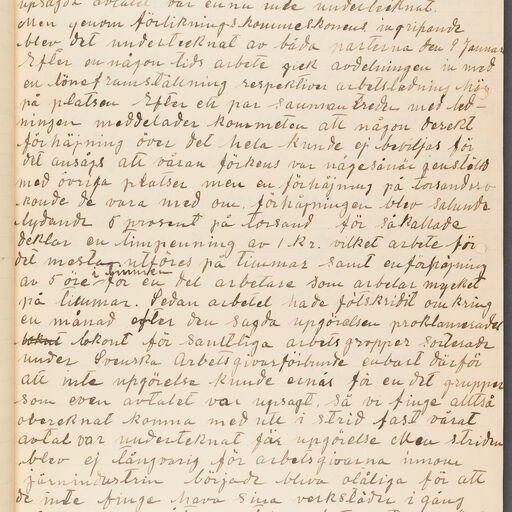 upsagda avtalet var ennu inte undertecknat.
Men genom förlikningskommissionens ingripande
blev det undertecknat av båda parterna den 9 Januari
Efter en någon tids arbete gick avdelningen in med
en löneframställning respektiver arbetsledning
på platsen Efter ett par sammanträden med led-
ningen meddelades kommeten att någon direkt
förhöjning över det hela kunde ej beviljas för
det ansågs att våran förkens var någesånär jenstäld
med övriga platser men en förhöjning på torsand
kunde de vara med om. förhöjningen blev salunda
lydande 5 prosent på torsand för såkallade
deklar en timpenning av 1 kr. vilket arbete för
det mesta utföres på timmar samt en förhöjning
av 5 öre i timmen för en del arbetare som arbetar mycket
på timmar. Sedan arbetet hade fotskridit omkring
en månad efter den sagda uppgörelsen proklamerades
lokout för samttliga arbetsgropper sorterade
under Svenska Arbetsgivarförbunde enbart därför
att inte upgörelse kunde ernås för en del grupper
som even avtalet var upsagt. Så vi finge alltså
obereknat komma med ute i strid fast vårat
avtal var underteknat för upgörelse Men striden
blev ej långvarig för arbetsgivarna innom
järnindustrin började bliva oläliga för att
de inte finge hava sina verkstäder i gång